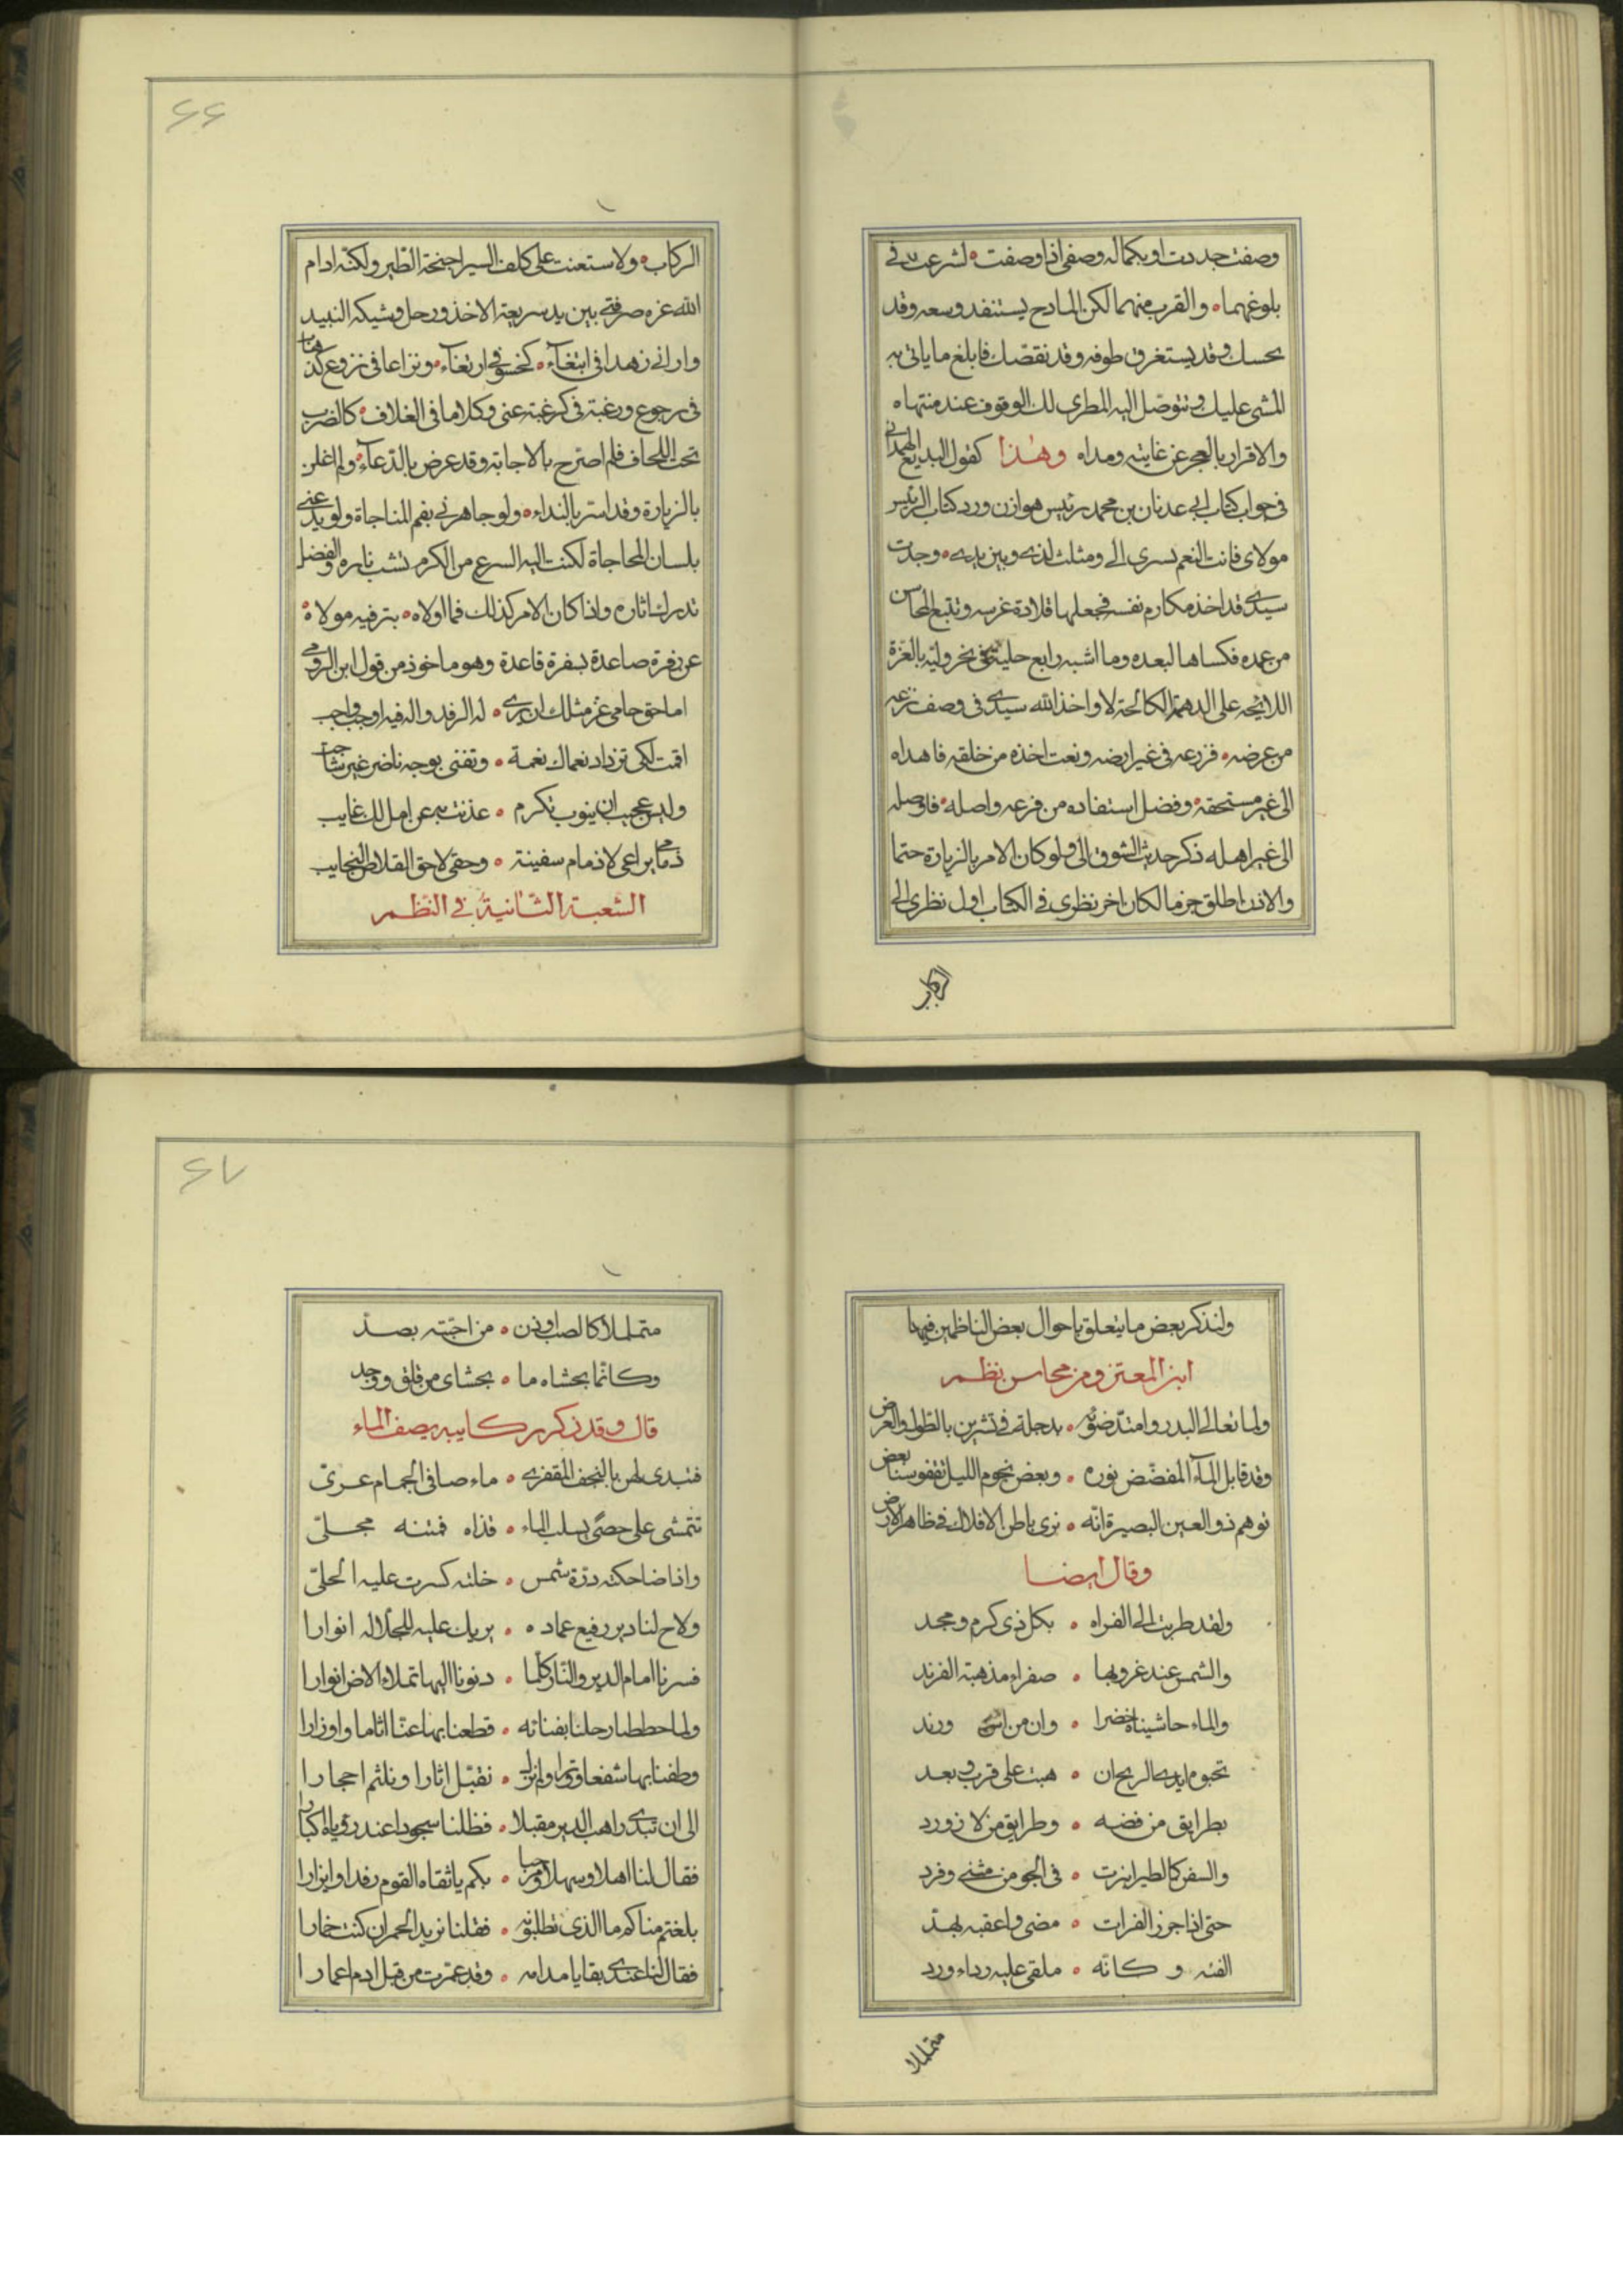 وصفت جددت او بكماله وصفى اذا وصفت لشرعت في
بلوغهما والقرب منهما لكن المادح يستنفد وسعه وقد
بحسك وقد يستغرق طوفه وقد نقصك فابلغ ما ياتى به
المثنى عليك و تتوصل اليه المطرى لك الوقوف عند منتهاه
والاقرار بالعجز عن غايته ومداه وهذا كقول البديع الهمدانى
فى جواب كتاب ابى عدنان بن محمد رئيس هوازن ورد كتاب الرئيس
مولاى فانت النعم تسرى الى ومثلت لذة وبين يديه وجدت
سيدى قد اخذ مكارم نفسه فجعلها قلادة غرسه وتتبع المحاسن
من عنده فكساها لبعده وما اشبه رايع حليته فى نحر وليه بالغرة
اللايحه على الدهمة الكالحة لا واخذ الله سيدى فى وصف نزعه
من عرضه فزرعه فى غير ارضه ونعت اخذه من خلقه فاهداه
الى غير مستحقه وفضل استفاده من فرعه واصله فاوصله
الى غير اهله ذكر حديث الشوق الى ولو كان الامر بالزيارة حتما
والاذن اطلق جزما لكان اخر نظرى فى الكتاب اول نظرى الى
الركاب
٤٦
الركاب ولاستعنت على كلف السير اجنحة الطير ولكنه ادام
الله عزه صرفنى بين يد سريعة الاخذ ورجل وشيكه النبيد
وارانى زهدا فى ابتغاء كحسو فى ارتغاء ونزاعا فى نزوع كذهاب
فى رجوع ورغبة فى كرغبة عنى وكلاما فى الغلاف كالضرب
تحت اللحاف فلم اصترح بالاجابة وقد عرض بالدعاء ولم اعلن
بالزيارة وقد استر بالنداء ولو جاهرنى بفم المناجاة ولو يدعنى
بلسان المحاجاة لكنت اليه اسرع من الكرم تشب ناره والفضل
تدرك اثاره واذا كان الامر كذلك فما اولاه بترفيه مولاه
عن زفرة صاعدة بسفرة قاعدة وهو ماخوذ من قول ابن الرومى
اما حق حامى عز مثلك ان يرى ٠ له الرفد والترفيه اوجب واجب
اقمت لكى تزداد نعماك نعمة ٠ وتغنى بوجه ناضر غير شاحب
وليس عجيب ان ينوب تكرم ٠ عذنت به عن امل لك غايب
ذمامى يراعى لا ذمام سفينة ٠ وحقى لا حق القلاص النجايب
الشعبة الثانية فى النظم
ولنذكر بعض ما يتعلق باحوال بعض الناظمين فيها
ابن المعتز ومن محاسن نظم
ولما تعالى البدر وامتد ضوئه ٠ بدجلة فى تشرين بالطول والعرض
وقد قابل الماء المفضض نوره ٠ وبعض نجوم الليل تقفو سنا بعض
توهم ذو العين البصيرة انه ٠ نرى باطن الافلاك فى ظاهر الارض
وقال ايضا
ولقد طربت الى الفراه ٠ بكل ذى كرم ومجد
والشمس عند غروبها ٠ صفراء مذهبة الفرند
والماء حاشيتاه خضرا ٠ وان من اس ورند
تحبو مايديه الريحان ٠ هبت على قرب و بعد
بطرايق من فضه ٠ وطرايق من لازورد
والسفن كالطير انبرت ٠ فى الجو من مثنى وفرد
حتى اذا جوز الفرات ٠ مضى واعقبه بهد
الفته و كانه ٠ ملقى عليه رداء ورد
متململا
٤٧
متململا كالصب اوذن ٠ من احبته بصد
وكانما بحشاه ما ٠ بحشاى من قلق ووجد
قال وقد ذكر ركايبه يصف الماء
فتبدى لهن بالنجف المقفر ٠ ماء صافى الجمام عرى
تتمشى على حصى يسلب الماء ٠ قذاه فمتنه مجلى
واذا ضاحكته درة شمس ٠ خلته كسرت عليه الحلى
ولاح لنا دير رفيع عماده ٠ يريك عليه للجلاله انوارا
فسرنا امام الدير والنار كلما ٠ دنونا اليها تملاء الارض انوارا
ولما حططنا رحلنا بفنائه ٠ قطعنا بها عنا اثاما و اوزارا
وطفنا بها شفعا ووترا ولم نزل ٠ نقبل اثارا ونلثم احجارا
الى ان تبدى راهب الدير مقبلا ٠ فظلنا سجودا عند رؤياه اكبارا
فقال لنا اهلا وسهلا ومرحبا ٠ بكم يا ثقاه القوم رفدا وايزارا
بلغتم مناكم ما الذى تطلبونه ٠ فقلنا نريد الخمر ان كنت خمارا
فقال لنا عندى بقايا مدامه ٠ وقد عمرت من قبل ادم اعمارا